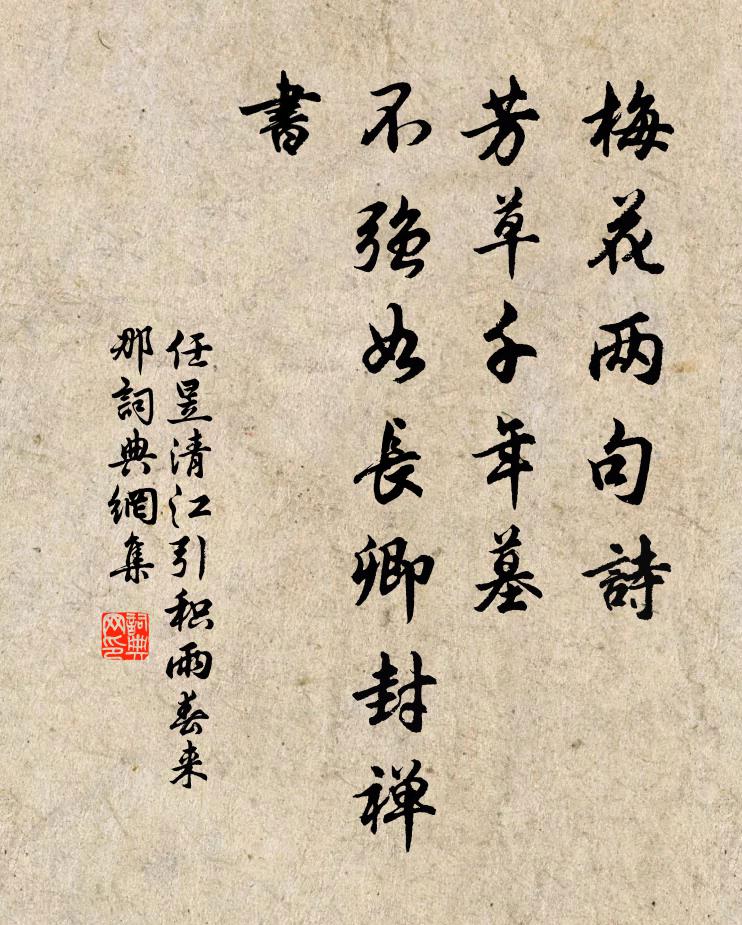 梅花两句詩
芳草千年墓
不強如長卿封禅
書
任昱清江引积雨春来
那詞典網集
詞典网印